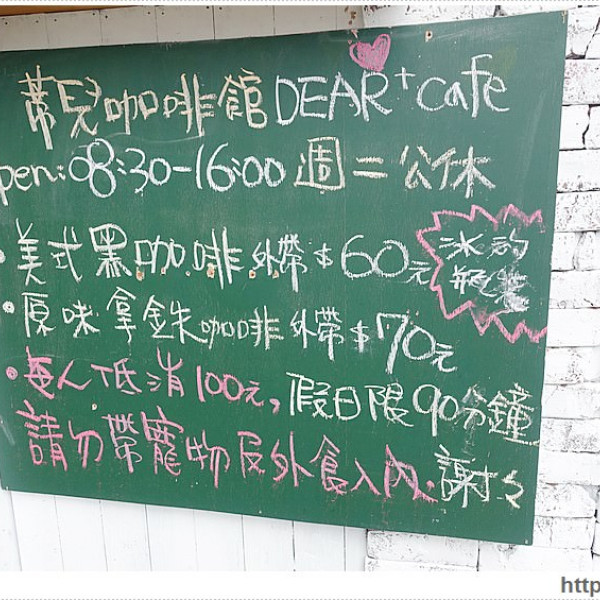 蒂兒咖啡館DEAR+cafe
pen:08:30-16:00 週二公休
•美式黑咖啡外帶$60元 冰的 瓶裝
•原味拿鉄咖啡外帶$70元
•每人低消100元,假日限90分鐘
請勿帶寵物及外食入內.謝々
http